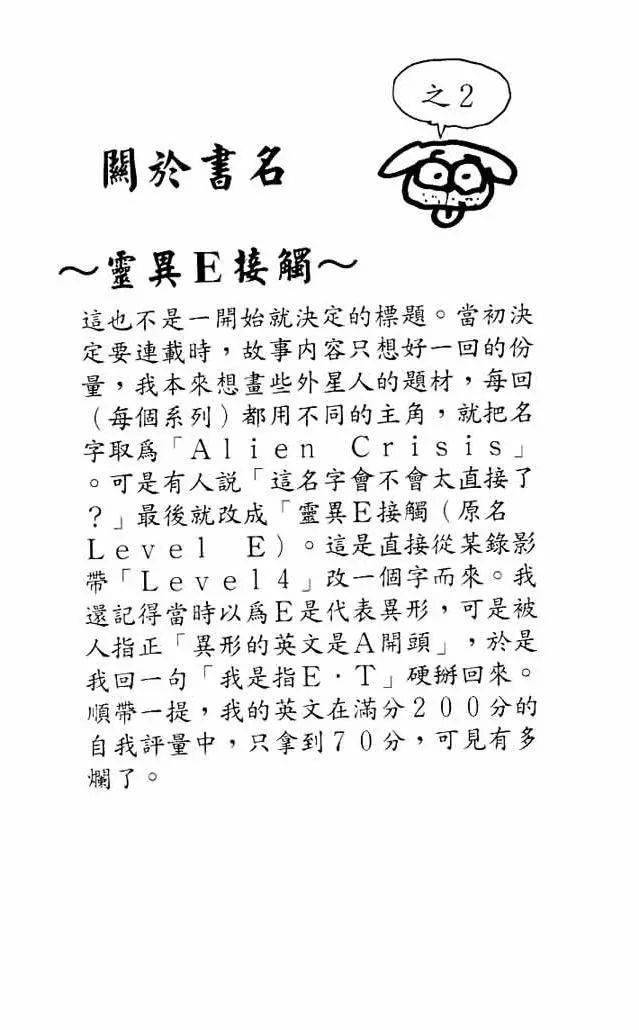 之2
關於書名
～靈異E接觸～
這也不是一開始就決定的標題。當初決
定要連載時，故事內容只想好一回的份
量，我本來想畫些外星人的題材，每回
（每個系列）都用不同的主角，就把名
字取爲「Alien Crisis」
。可是有人説「這名字會不會太直接了
？」最後就改成「靈異E接觸（原名
Level E）。這是直接從某錄影
帶「Level4」改一個字而來。我
還記得當時以爲E是代表異形，可是被
人指正「異形的英文是A開頭」，於是
我回一句「我是指E·T」硬掰回來。
順帶一提，我的英文在滿分200分的
自我評量中，只拿到70分，可見有多
爛了。